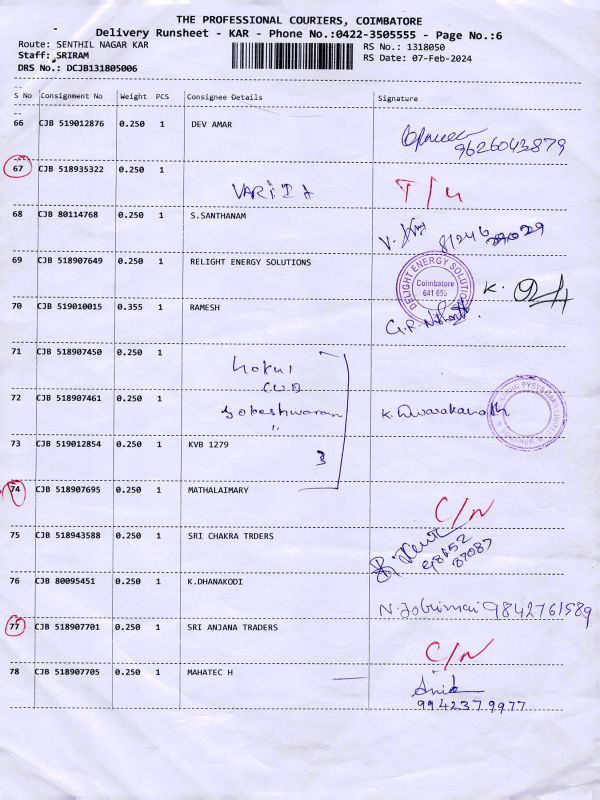 THE PROFESSIONAL COURIERS, COIMBATORE
Delivery Runsheet - KAR - Phone No.:0422-3505555 - Page No.:6
Route: SENTHIL NAGAR KAR RS No.: 1318050
Staff: SRIRAM RS Date: 07-Feb-2024
DRS No.: DCJB131805006
S No Consignment No Weight PCS Consignee Details Signature
66 CJB 519012876 0.250 1 DEV AMAR
9626043879
67 CJB 518935322 0.250 1
VARIDA T/4
68 CJB 80114768 0.250 1 S.SANTHANAM
69 CJB 518907649 0.250 1 RELIGHT ENERGY SOLUTIONS
DELIGHT ENERGY SOLUTIONS
Coimbatore
641 659
K.
70 CJB 519010015 0.355 1 RAMESH
G.R.
71 CJB 518907450 0.250 1
72 CJB 518907461 0.250 1
K. Dwarakanath
73 CJB 519012854 0.250 1 KVB 1279
3
74 CJB 518907695 0.250 1 MATHALAIMARY
C/N
75 CJB 518943588 0.250 1 SRI CHAKRA TRDERS
87087
76 CJB 80095451 0.250 1 K.DHANAKODI
9842761589
77 CJB 518907701 0.250 1 SRI ANJANA TRADERS
C/N
78 CJB 518907705 0.250 1 MAHATEC H
9942379977